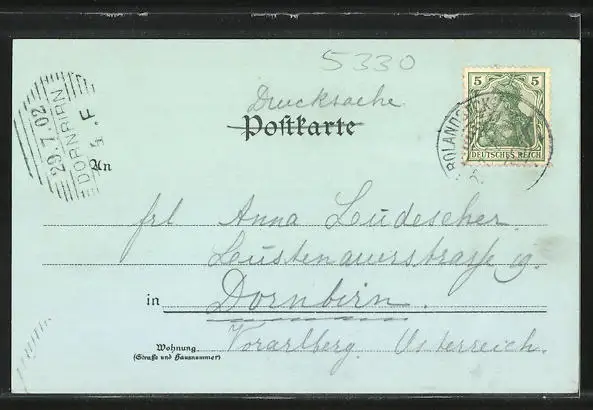 5330
5 5
DEUTSCHES REICH
ROLANDSECK
Drucksache
Postkarte
29.7.02
DORNBIRN
5. F
An
frl Anna Leudescher.
Lustenauerstraße 19.
in Dornbirn.
Wohnung Vorarlberg. Österreich.
(Straße und Hausnummer)